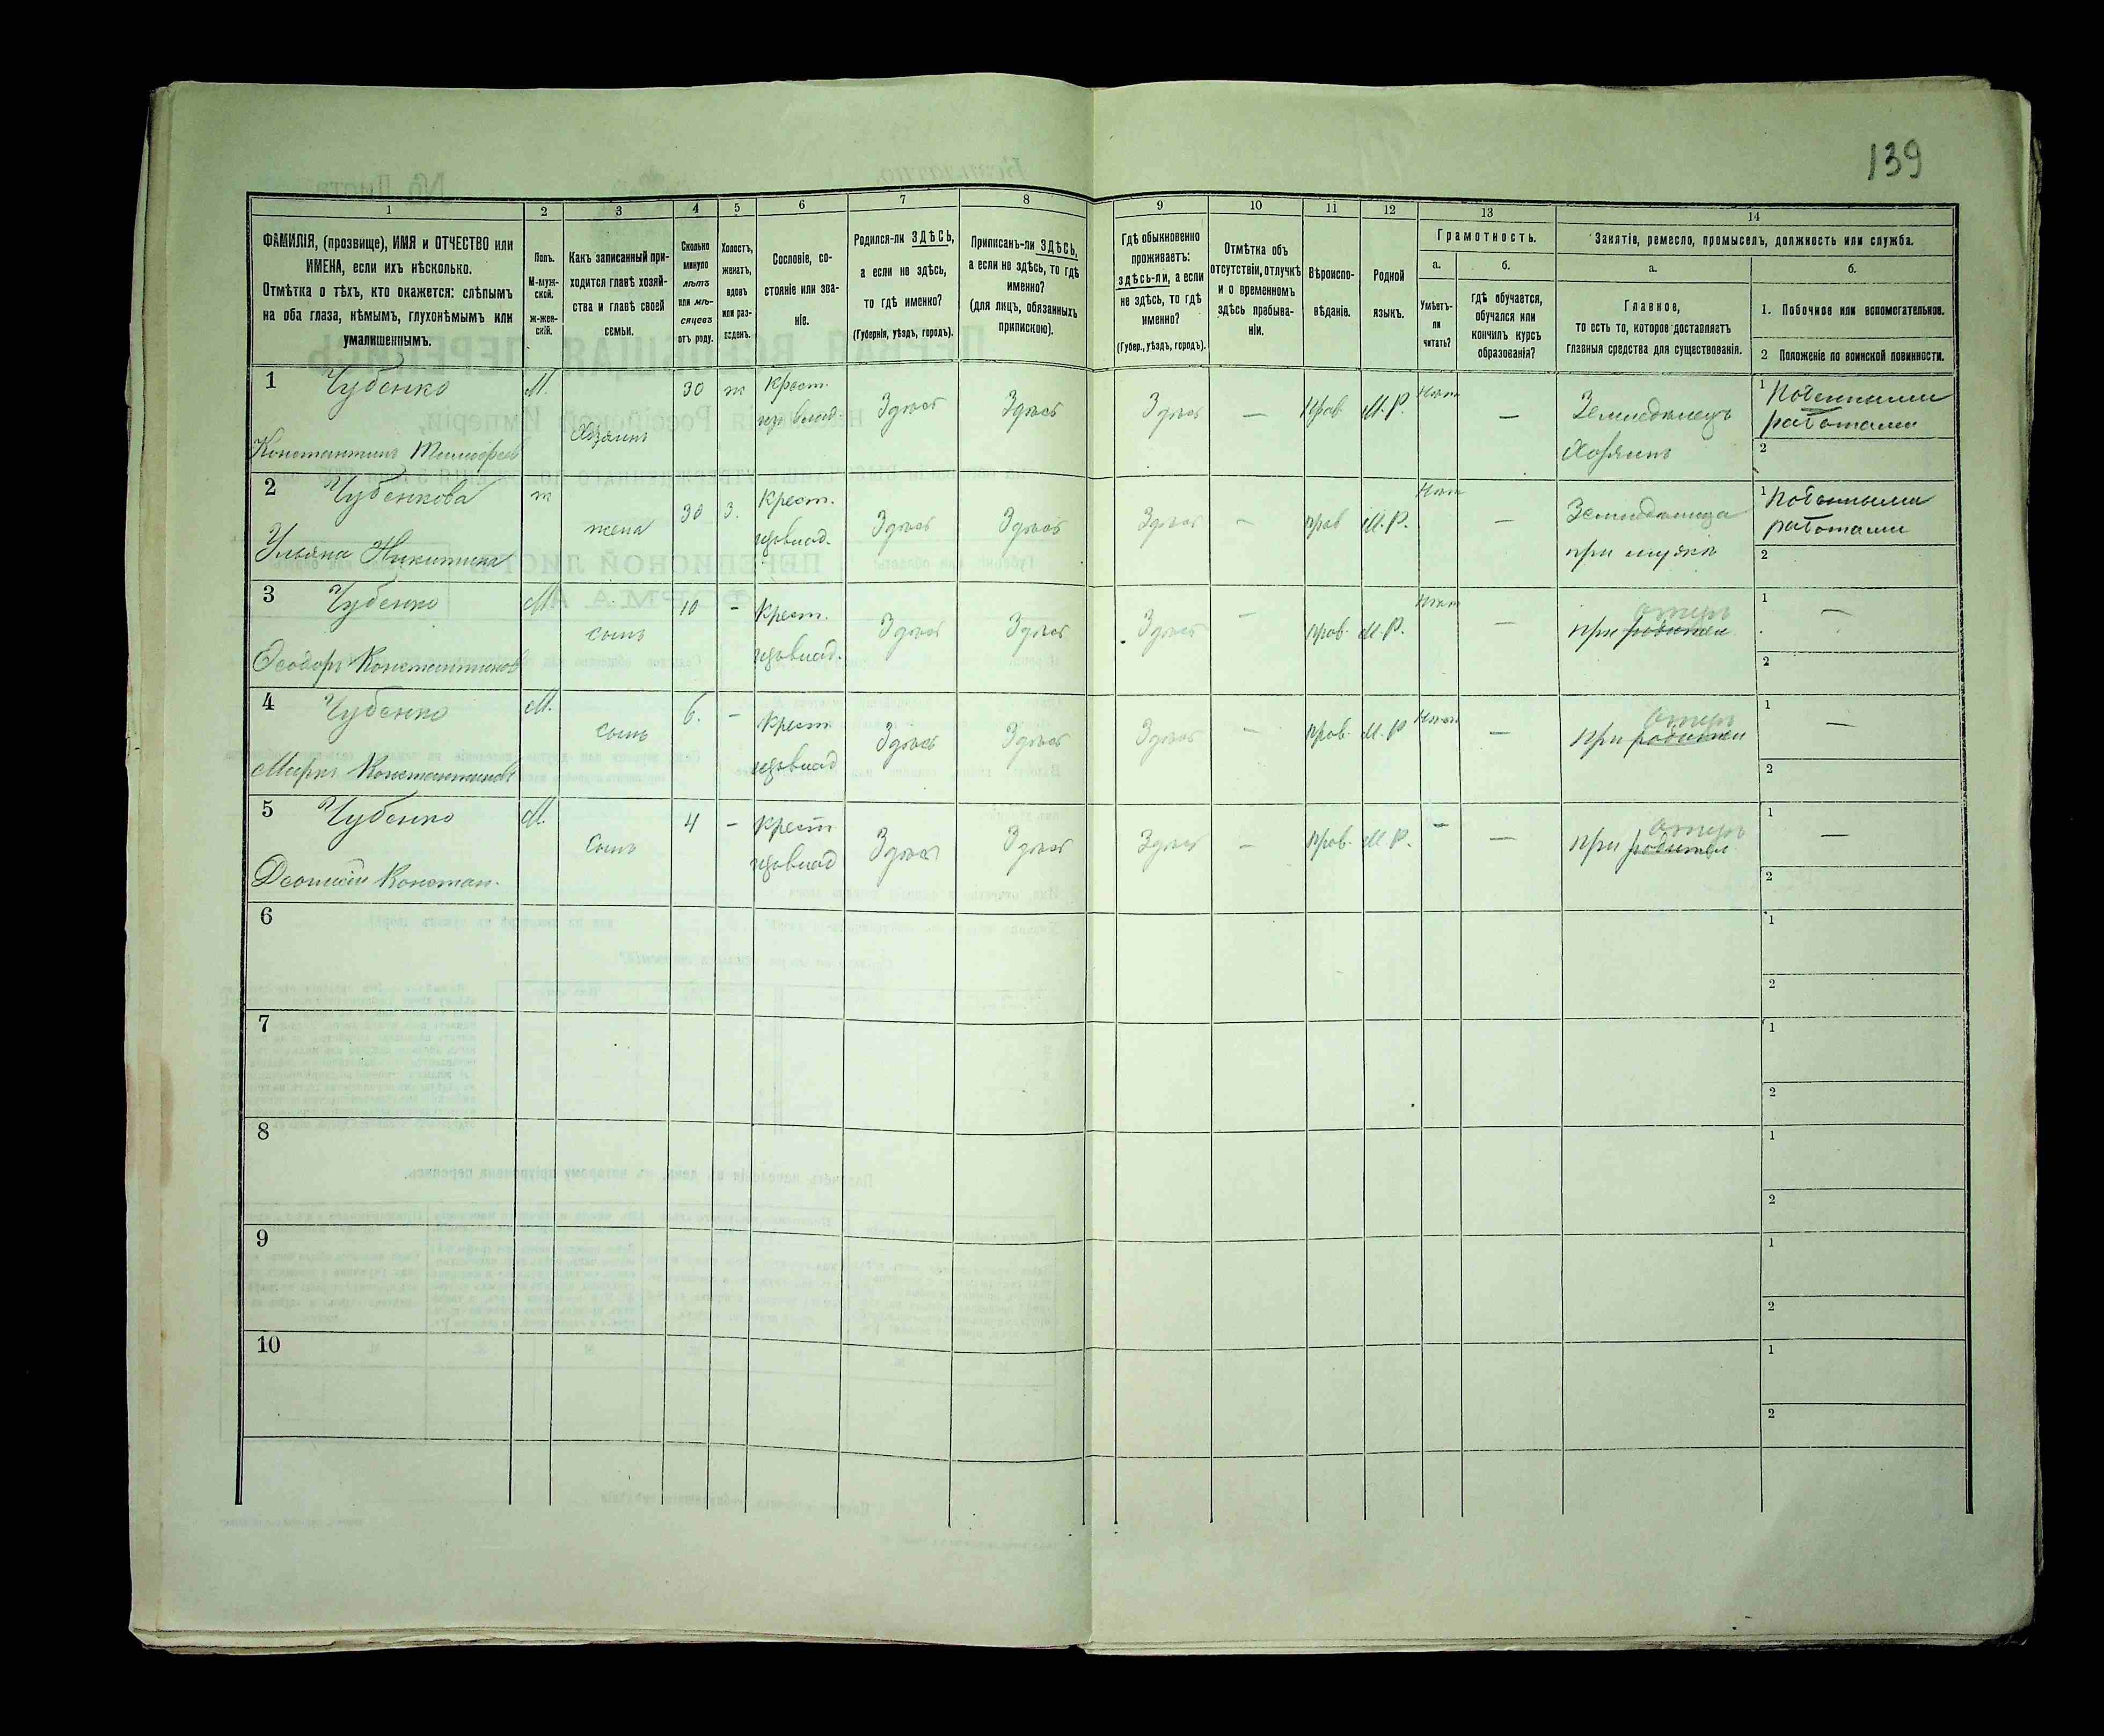 139
1 2 3 4 5 6 7 8 9 10 11 12 13 14
ФАМИЛІЯ, (прозвище), ИМЯ и ОТЧЕСТВО или
ИМЕНА, если ихъ нѣсколько.
Отмѣтка о тѣхъ, кто окажется: слѣпымъ
на оба глаза, нѣмымъ, глухонѣмымъ или
умалишеннымъ.
Полъ.
М-муж-
ской.
Ж-жен-
скій.
Какъ записанный при-
ходится главѣ хозяй-
ства и главѣ своей
семьи.
Сколько
минуло
лѣтъ
или мѣ-
сяцевъ
отъ роду.
Холостъ,
женатъ,
вдовъ
или раз-
веденъ.
Сословіе, со-
стояніе или зва-
ніе.
Родился-ли ЗДѢСЬ,
а если не здѣсь,
то гдѣ именно?
(Губернія, уѣздъ, городъ).
Приписанъ-ли ЗДѢСЬ,
а если не здѣсь, то гдѣ
именно?
(для лицъ, обязанныхъ
припискою).
Гдѣ обыкновенно
проживаетъ:
здѣсь-ли, а если
не здѣсь, то гдѣ
именно?
(Губер., уѣздъ, городъ).
Отмѣтка объ
отсутствіи, отлучкѣ
и о временномъ
здѣсь пребыва-
ніи.
Вѣроиспо-
вѣданіе.
Родной
языкъ.
Грамотность.
а.
Умѣетъ-
ли
читать?
б.
гдѣ обучается,
обучался или
кончилъ курсъ
образованія?
Занятіе, ремесло, промыселъ, должность или служба.
а.
Главное,
то есть то, которое доставляетъ
главныя средства для существованія.
б.
1. Побочное или вспомогательное.
2 Положеніе по воинской повинности.
1 Чубенко М. 30 ж Крест. Здѣсь Здѣсь Здѣсь — Прав. М. Р. Нѣт — Земледѣлецъ 1 Поденными
Константинъ Тимофеев Хозяинъ из влад. Хозяинъ работами
2
2 Чубенкова ж жена 30 з. Крест. Здѣсь Здѣсь Здѣсь — прав М. Р. Нѣт — Земледѣлица 1 Поденными
Ульяна Никитина изъ влад. при мужѣ работами
2
3 Чубенко М. сынъ 10 - Крест. Здѣсь Здѣсь Здѣсь — прав. М. Р. Нѣт — при отцѣ 1 —
Ѳеодоръ Константинов изъ влад. 2
4 Чубенко М. Сынъ 6. - Крест Здѣсь Здѣсь Здѣсь — прав. М. Р Нѣт — при отцѣ 1 —
Марко Константинов изъ влад 2
5 Чубенко М. Сынъ 4 - Крест Здѣсь Здѣсь Здѣсь — прав. М. Р. - — при отцѣ 1 —
Констан. изъ влад 2
6 1
2
7 1
2
8 1
2
9 1
2
10 1
2